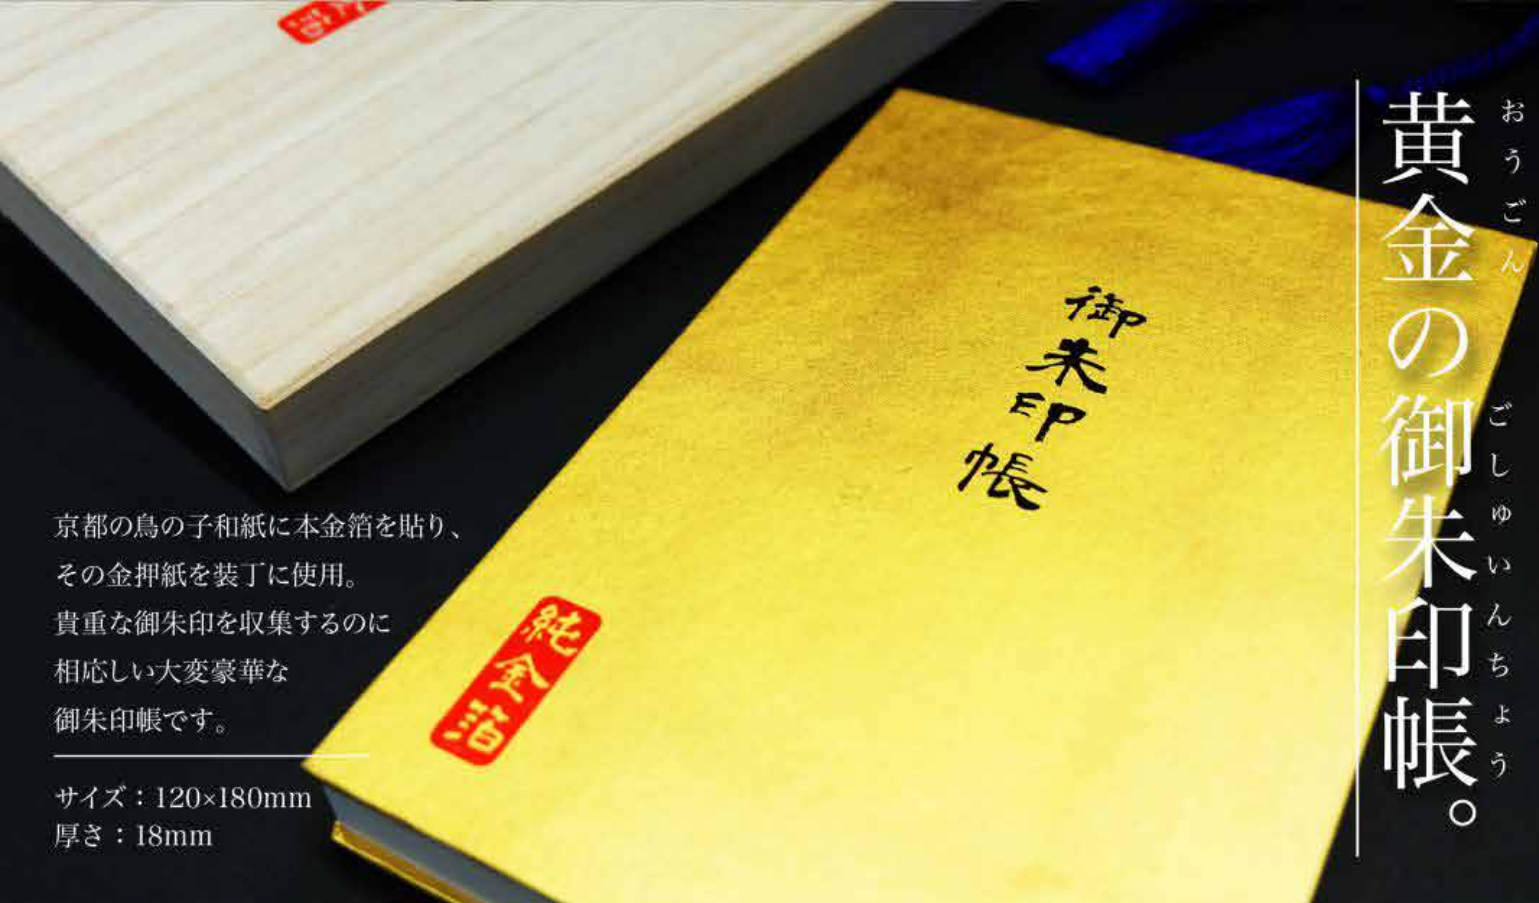 黄金の御朱印帳。
おうごん
ごしゅいんちょう
御朱印帳
純金箔
京都の鳥の子和紙に本金箔を貼り、
その金押紙を装丁に使用。
貴重な御朱印を収集するのに
相応しい大変豪華な
御朱印帳です。
サイズ：120×180mm
厚さ：18mm